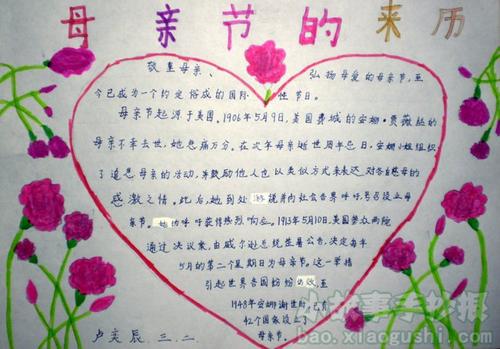 母亲节的来历
敬重母亲、弘扬母爱的母亲节,至
今已成为一个约定俗成的国际性节日。
母亲节起源于美国。1906年5月9日,美国费城的安娜·贾薇丝的
母亲不幸去世,她悲痛万分。在次年母亲逝世周年忌日,安娜小姐组织
了追思母亲的活动,并鼓励他人也以类似方式来表达对各自慈母的
感激之情。此后,她到处游说并向社会各界呼吁,号召设立母
亲节。她的呼吁获得热烈响应。1913年5月10日,美国参众两院
通过决议案,由威尔逊总统签署公告,决定每年
5月的第二个星期日为母亲节。这一举措
引起世界各国纷纷仿效,至
1948年安娜谢世时,已有
42个国家设立了
母亲节。
卢奕辰 三.二
小故事手抄报
bao.xiaogushi.com